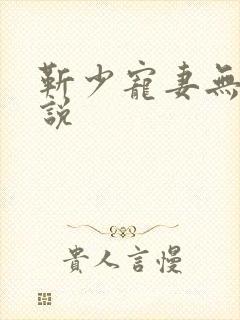 靳少寵妻無
說
貴人言慢